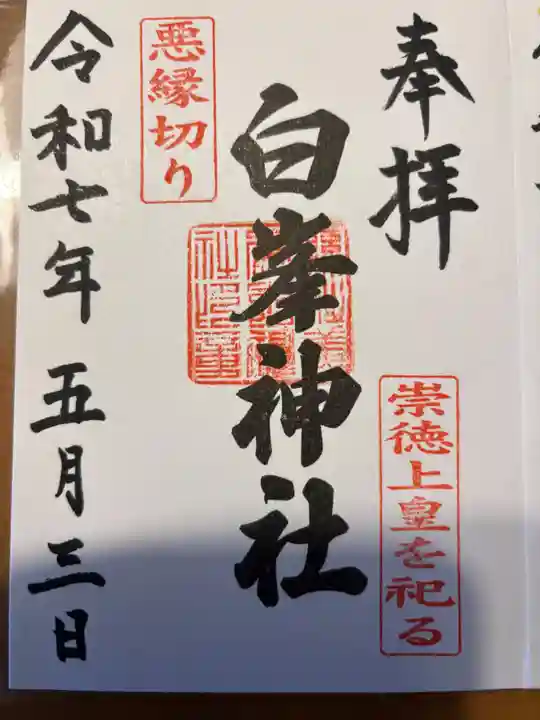 奉拝
崇徳上皇を祀る
白峯神社
悪縁切り
令和七年 五月 三日